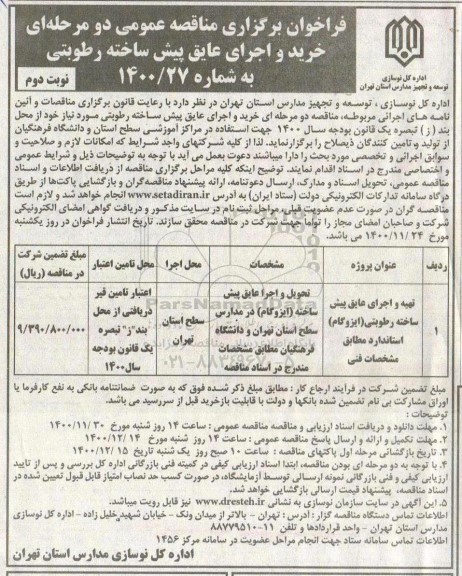 فراخوان برگزاری مناقصه عمومی دو مرحله‌ای
خرید و اجرای عایق پیش ساخته رطوبتی
به شماره ۱۴۰۰/۲۷
نوبت دوم
اداره کل نوسازی
توسعه و تجهیز مدارس استان تهران
اداره کل نوسازی ، توسعه و تجهیز مدارس استان تهران در نظر دارد با رعایت قانون برگزاری مناقصات و آئین
نامه های اجرائی مربوطه، مناقصه دو مرحله ای خرید و اجرای عایق پیش ساخته رطوبتی مورد نیاز خود از محل
بند ( ز ) تبصره یک قانون بودجه سال ۱۴۰۰ جهت استفاده در مراکز آموزشی سطح استان و دانشگاه فرهنگیان
از تولید و تامین کنندگان ذیصلاح را برگزار نماید. لذا از کلیه شرکتهای واجد شرایط که امکانات لازم و صلاحیت و
سوابق اجرائی و تخصصی مورد بحث را دارا میباشند دعوت بعمل می آید با توجه به توضیحات ذیل و شرایط عمومی
و اختصاصی مندرج در اسناد اقدام نمایند. توضیح اینکه کلیه مراحل برگزاری مناقصه از دریافت اطلاعات و اسناد
مناقصه عمومی، تحویل اسناد و مدارک، ارسال دعوتنامه، ارائه پیشنهاد مناقصه‌گران و بازگشایی پاکت‌ها از طریق
درگاه سامانه تدارکات الکترونیکی دولت (ستاد ایران) به آدرس www.setadiran.ir انجام خواهد شد و لازم است
مناقصه گران در صورت عدم عضویت قبلی، مراحل ثبت نام در سایت مذکور و دریافت گواهی امضای الکترونیکی
شرکت و صاحبان امضای مجاز را تواماً جهت شرکت در مناقصه محقق سازند. تاریخ انتشار فراخوان در روز یکشنبه
مورخ ۱۴۰۰/۱۱/۲۴ می باشد.
ردیف عنوان پروژه مشخصات محل اجرا محل تامین اعتبار مبلغ تضمین شرکت در مناقصه (ریال)
۱ تهیه و اجرای عایق پیش ساخته رطوبتی(ایزوگام) استاندارد مطابق مشخصات فنی تحویل و اجرا عایق پیش ساخته (ایزوگام) در مدارس سطح استان تهران و دانشگاه فرهنگیان مطابق مشخصات مندرج در اسناد مناقصه سطح استان تهران اعتبار تامین قیر دریافتی از محل بند"ز" تبصره یک قانون بودجه سال۱۴۰۰ ۹/۳۹۰/۸۰۰/۰۰۰
مبلغ تضمین شرکت در فرآیند ارجاع کار : مطابق مبلغ ذکر شده فوق که به صورت ضمانتنامه بانکی به نفع کارفرما یا
اوراق مشارکت بی نام تضمین شده بانکها و دولت با قابلیت بازخرید قبل از سررسید می باشد.
توضیحات :
۱. مهلت دانلود و دریافت اسناد ارزیابی و مناقصه مناقصه عمومی : ساعت ۱۴ روز شنبه مورخ ۱۴۰۰/۱۱/۳۰
۲. مهلت تکمیل و ارائه و ارسال پاسخ مناقصه عمومی : ساعت ۱۴ روز شنبه مورخ ۱۴۰۰/۱۲/۱۴
۳. تاریخ بازگشائی مرحله اول پاکتهای مناقصه : ساعت ۱۰ صبح روز یک شنبه تاریخ ۱۴۰۰/۱۲/۱۵
۴. با توجه به دو مرحله ای بودن مناقصه، ابتدا اسناد ارزیابی کیفی در کمیته فنی بازرگانی اداره کل بررسی و پس از تایید
ارزیابی کیفی و فنی بازرگانی نمونه ارسالی توسط آزمایشگاه، در صورت کسب حد نصاب امتیاز قابل قبول تعیین شده در
اسناد مناقصه، پیشنهاد قیمت ارسالی بازگشایی خواهد شد.
۵. این آگهی در سایت سازمان نوسازی به نشانی www.dresteh.ir نیز قابل رویت میباشد.
اطلاعات تماس دستگاه مناقصه گزار : آدرس : تهران - بالاتر از میدان ونک - خیابان شهید خلیل زاده - اداره کل نوسازی
مدارس استان تهران - واحد قراردادها و تلفن ۱۱-۸۸۷۷۹۵۱۰
اطلاعات تماس سامانه ستاد جهت انجام مراحل عضویت در سامانه مرکز ۱۴۵۶
اداره کل نوسازی مدارس استان تهران